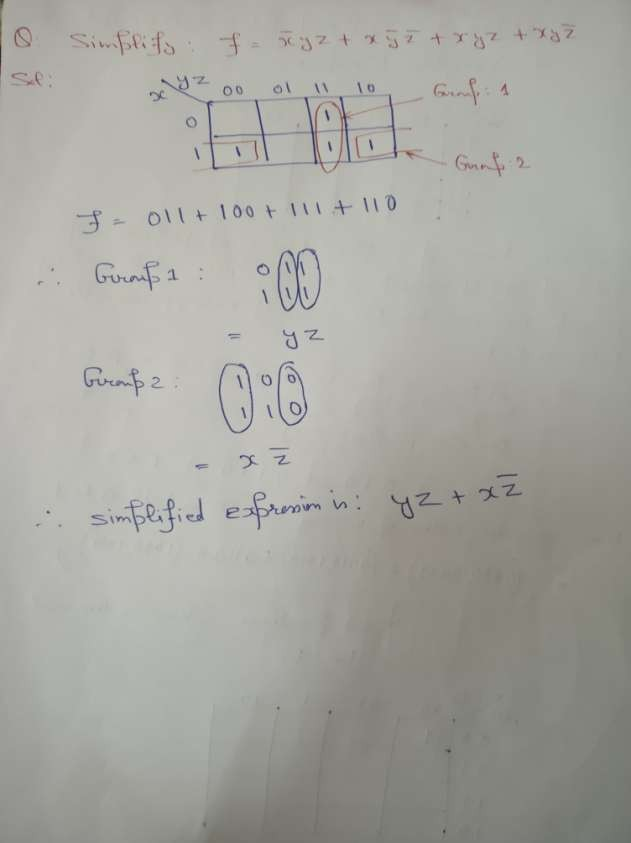 Q. Simplify: F = x̄yz + xȳz̄ + xyz + xyz̄
Sol:
x yz 00 01 11 10
0 1
1 1 1 1
Group: 1
Group: 2
F = 011 + 100 + 111 + 110
∴ Group 1 : 0 1 1
1 1 1
= yz
Group 2 : 1 0 0
1 1 0
= x z̄
∴ simplified expression is: yz + xz̄